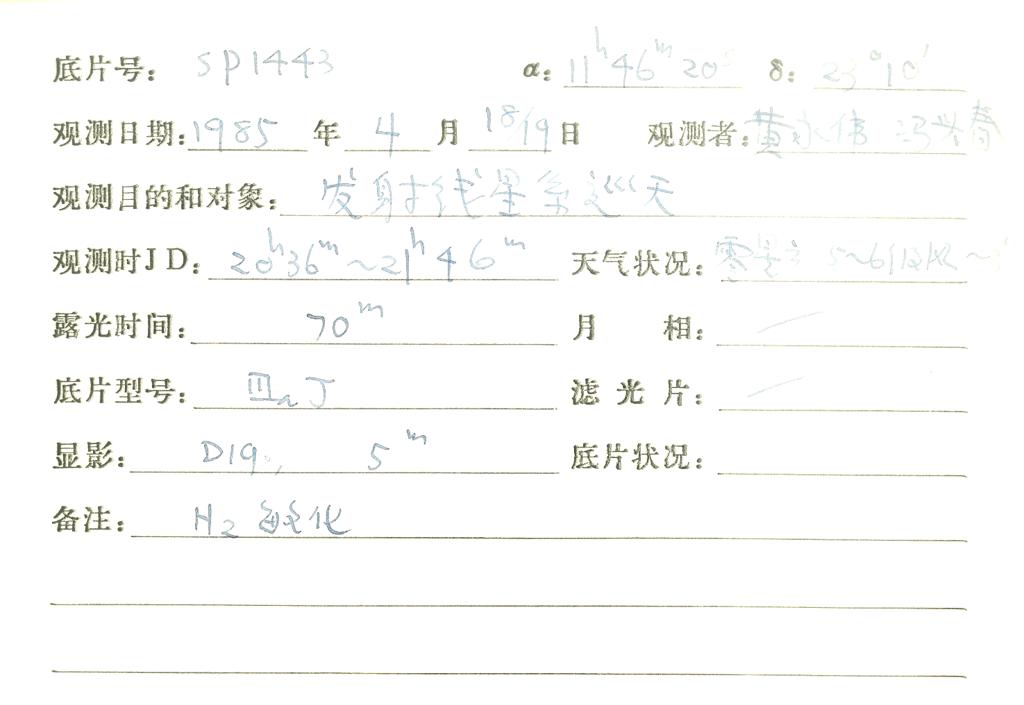 底片号: SP1443 α: 11ʰ46ᵐ20ˢ δ: 23°10′
观测日期: 1985 年 4 月 18/19 日 观测者: 黄永伟 冯兴春
观测目的和对象: 发射线星系巡天
观测时JD: 20ʰ36ᵐ~21ʰ46ᵐ 天气状况: 5~6级风
露光时间: 70ᵐ 月 相: /
底片型号: ⅢaJ 滤光片: /
显影: D19, 5ᵐ 底片状况:
备注: H₂ 敏化